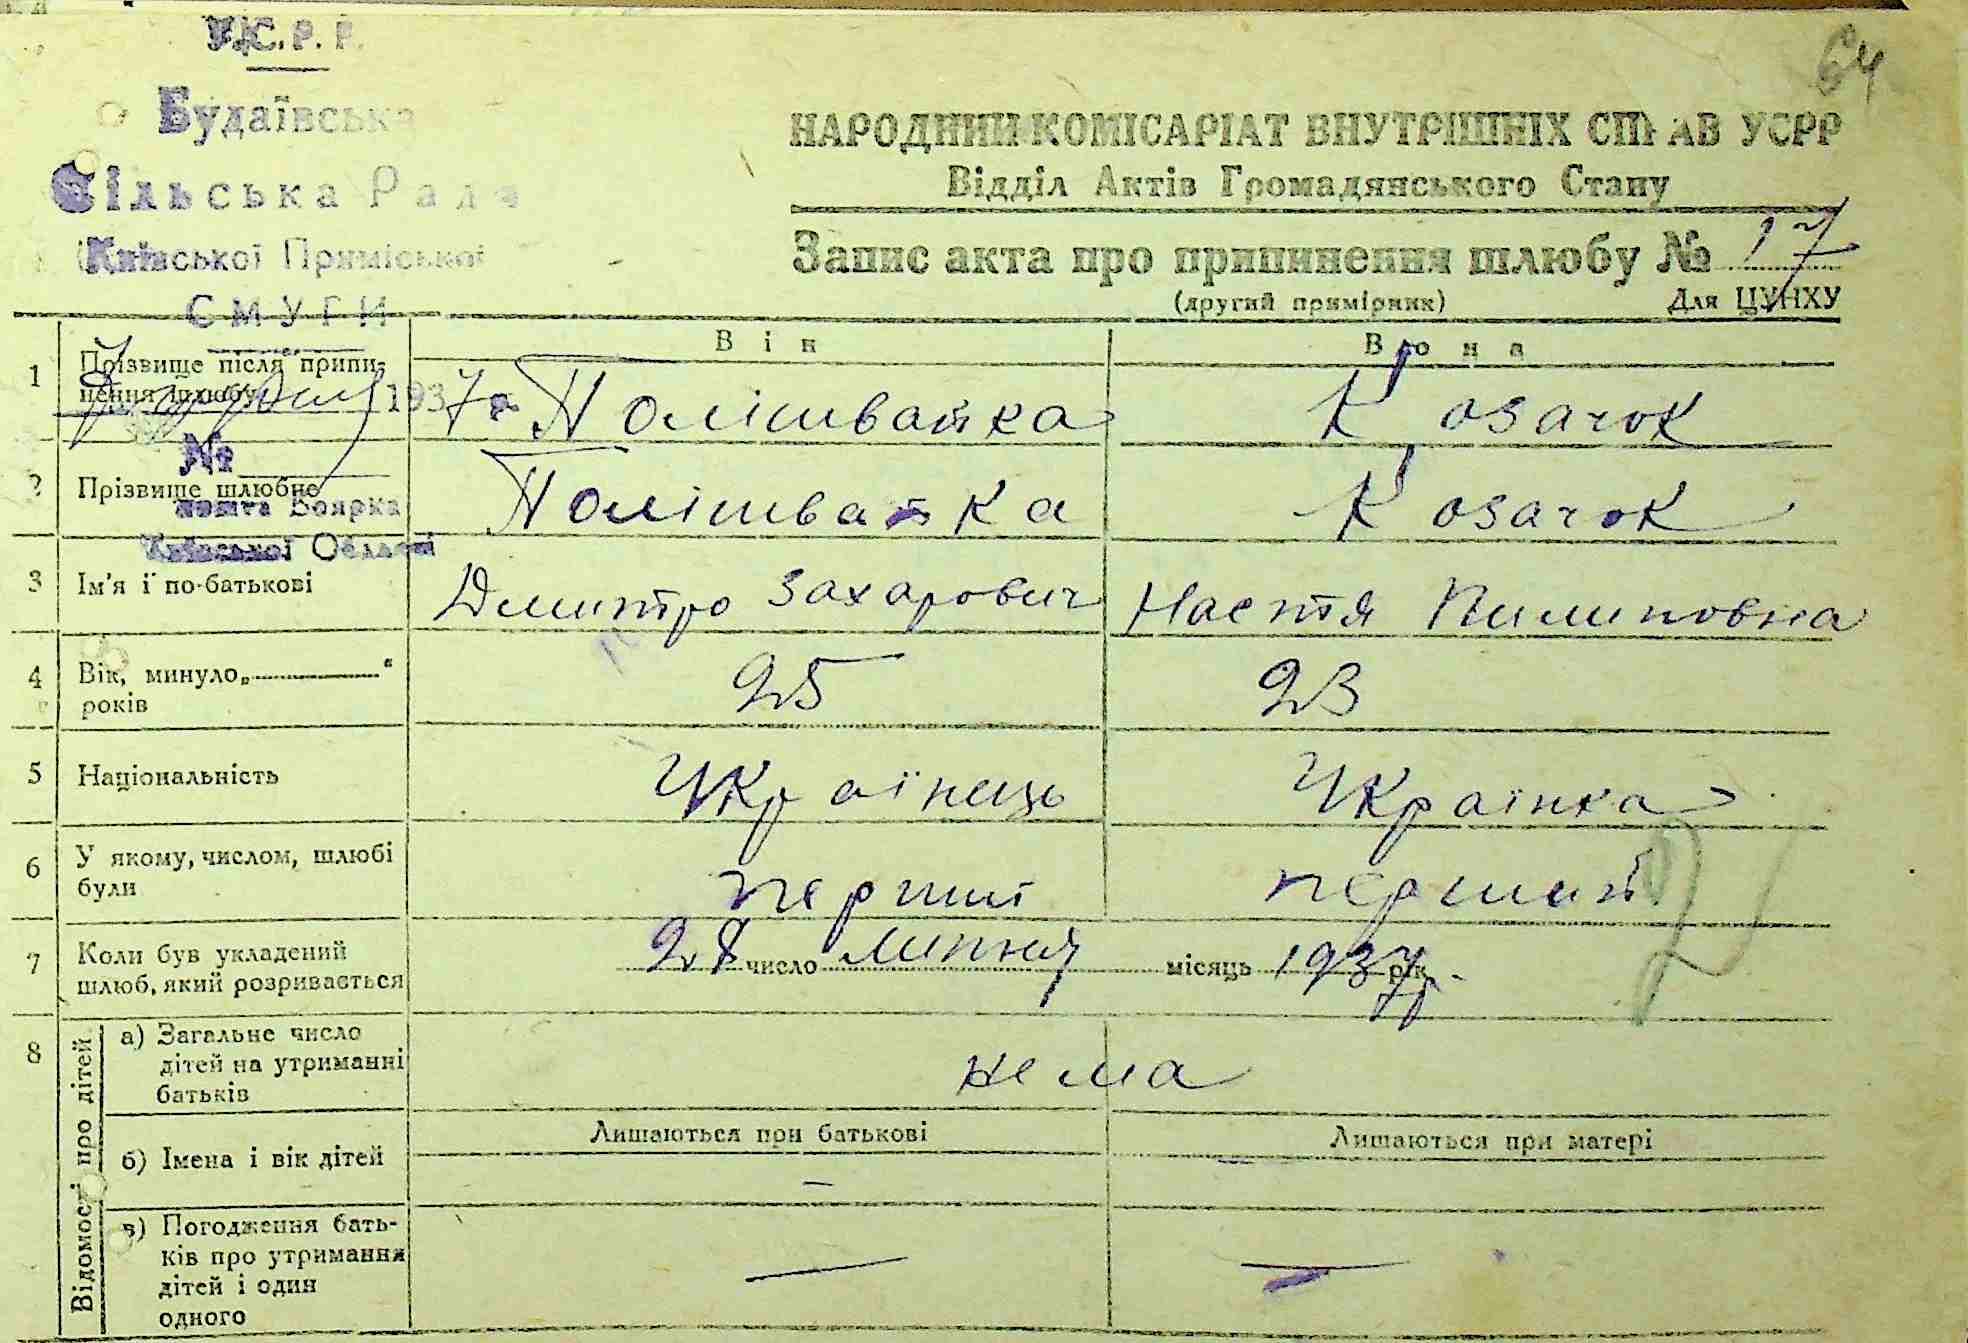 У.С.Р.Р.
64
Будаївська
Сільська Рада
Київської Приміської
СМУГИ
НАРОДНИЙ КОМІСАРІАТ ВНУТРІШНІХ СПРАВ УСРР
Відділ Актів Громадянського Стану
Запис акта про припинення шлюбу № 17
(другий примірник) Для ЦУНХУ
Він Вона
1 Прізвище після припи-
нення шлюбу Полішвайка Козачок
1937р
№
2 Прізвище шлюбне Полішвайка Козачок
пошта Боярка
Київської Області
3 Ім'я і по-батькові Дмитро Захарович Настя Пилиповна
4 Вік, минуло „ “
років 25 23
5 Національність Українець Українка
6 У якому, числом, шлюбі
були перший
7 Коли був укладений
шлюб, який розривається 28 число липня місяць 1937 рік
8 Відомості про дітей
а) Загальне число
дітей на утриманні
батьків нема
Лишаються при батькові Лишаються при матері
б) Імена і вік дітей – —
в) Погодження бать-
ків про утримання
дітей і один
одного — —